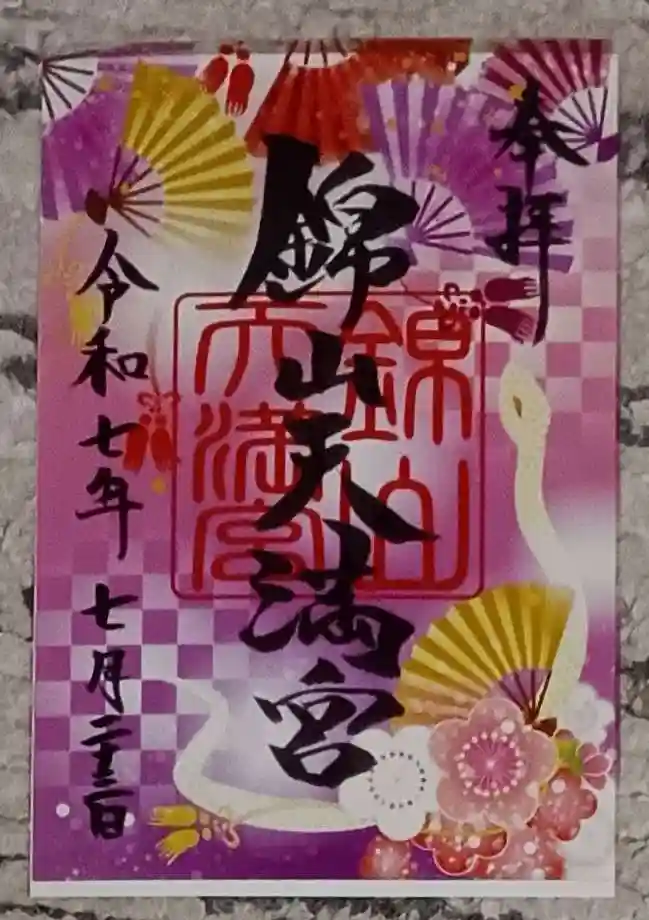 奉拝
錦山天満宮
錦山
天満宮
令和七年七月二十三日